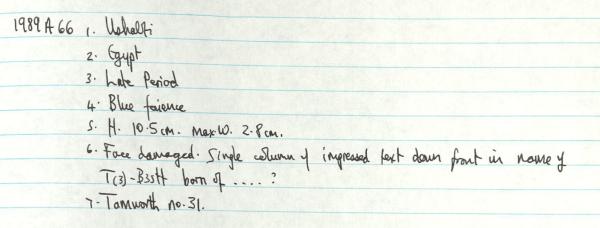 1989 A 66 1. Ushabti
2. Egypt
3. Late Period
4. Blue faience
5. H. 10.5cm. Max W. 2.8cm.
6. Face damaged. Single column of impressed text down front in name of
T(3)-B3stt born of ....?
7. Tamworth no. 31.